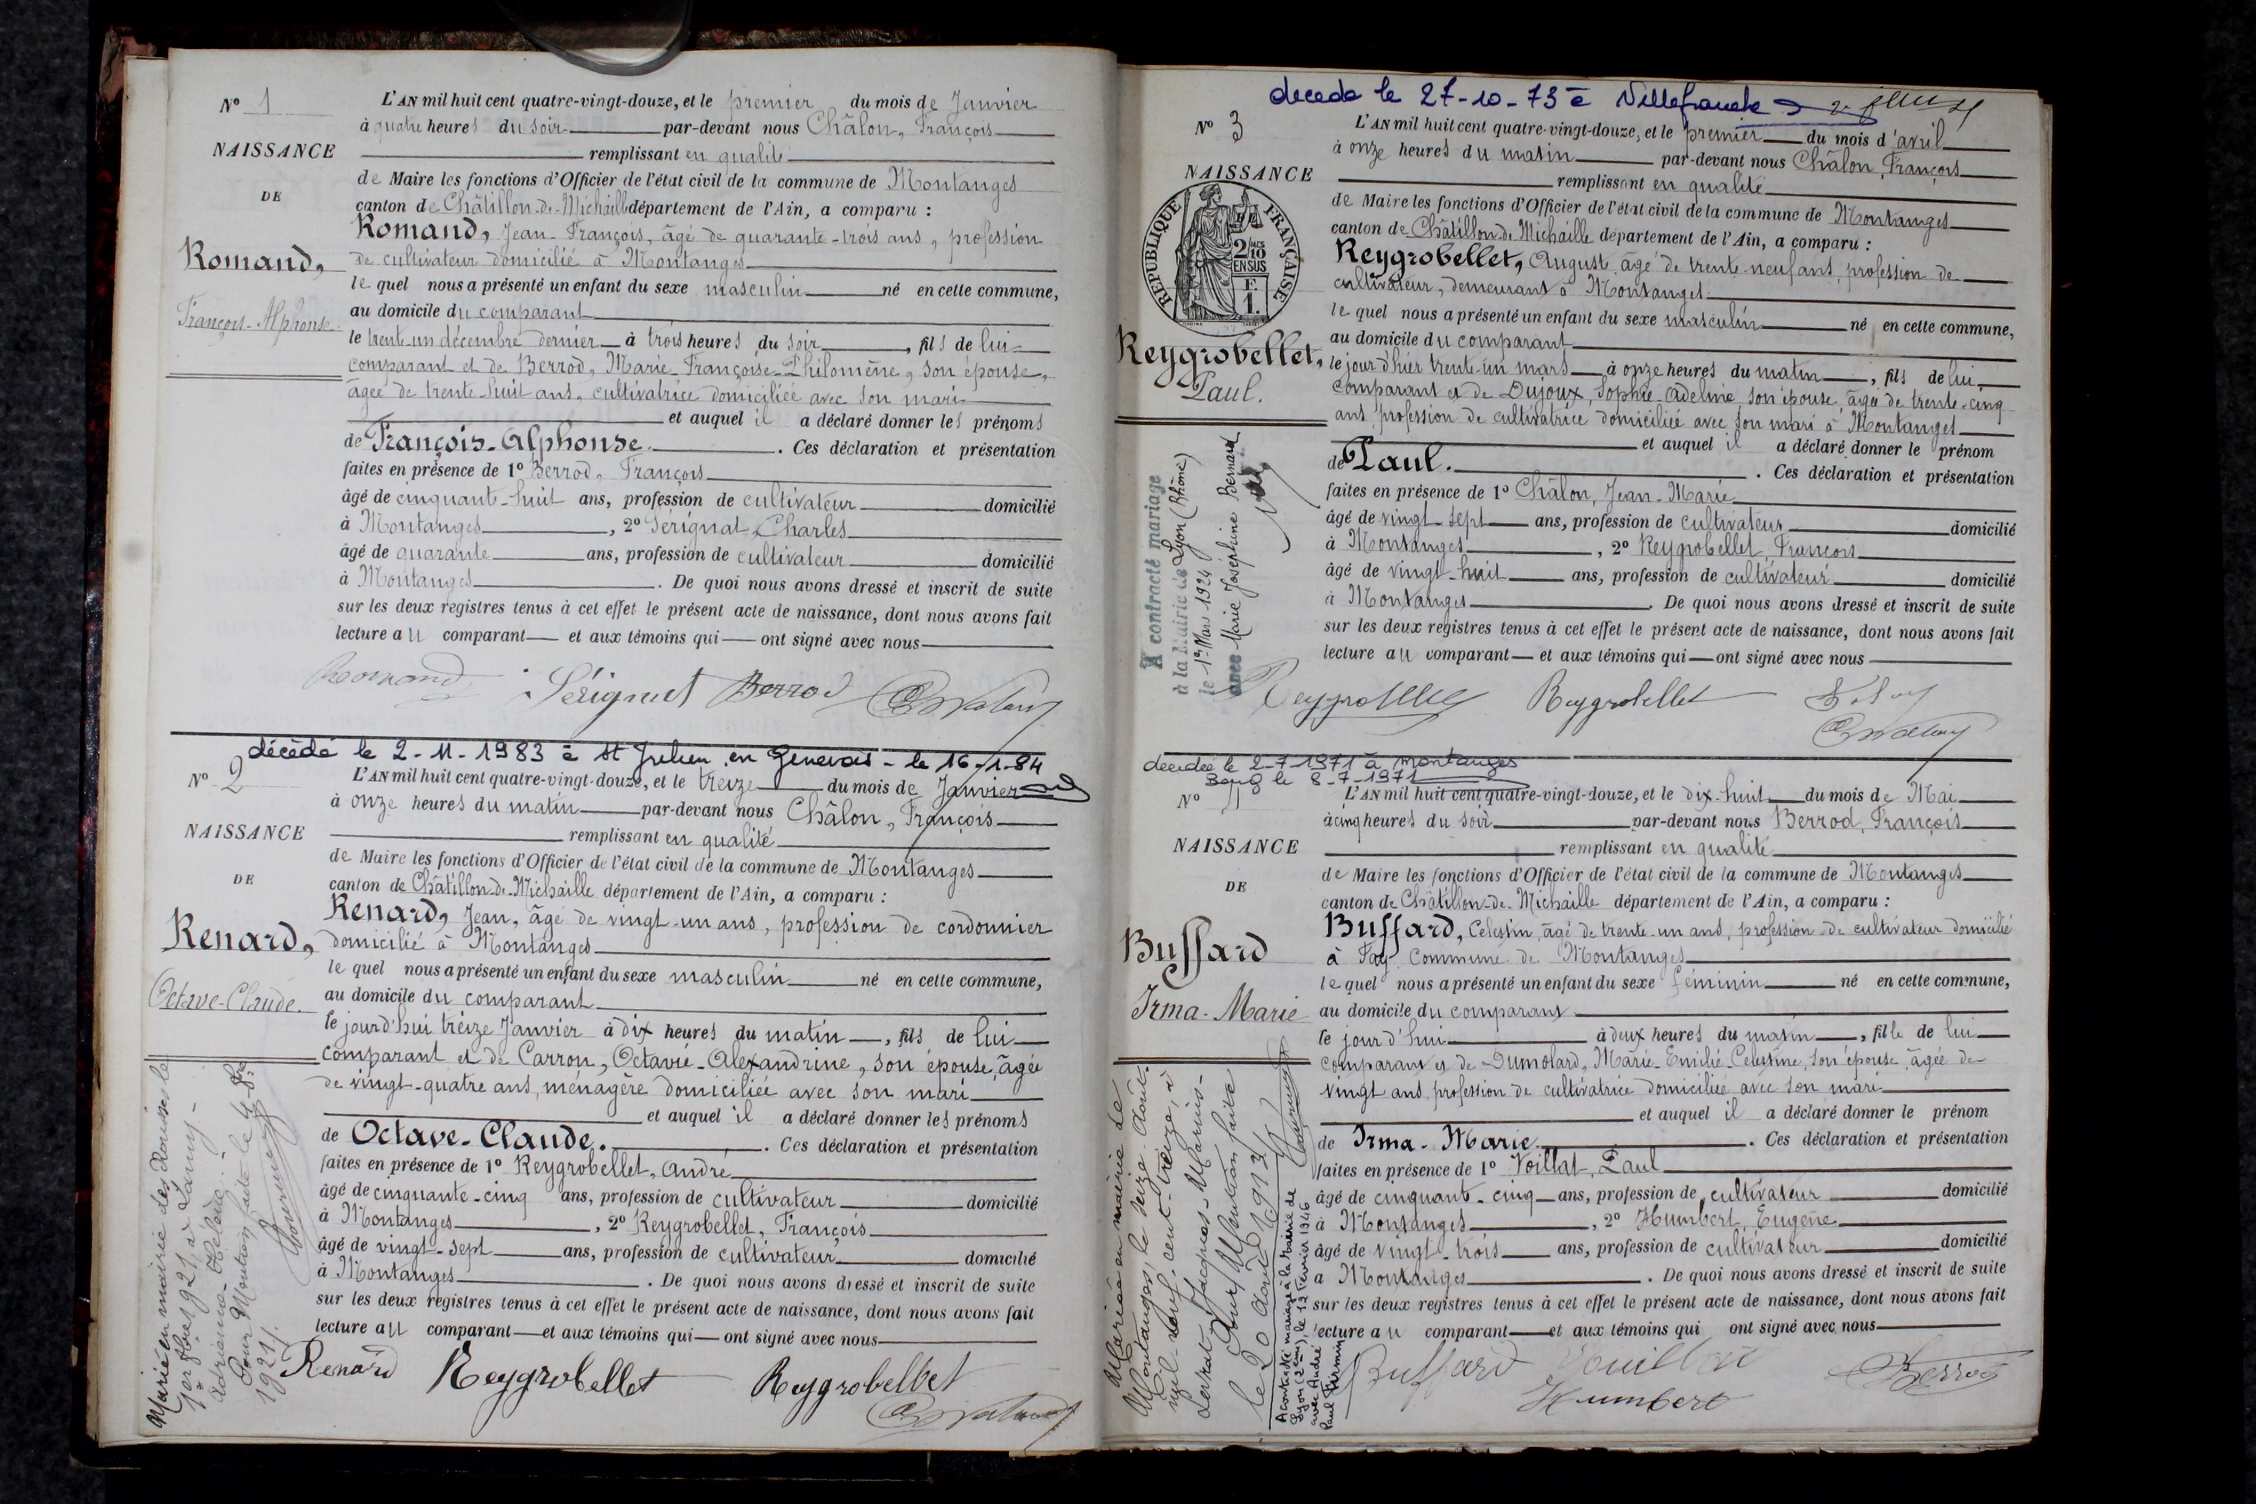 N° 1
NAISSANCE
DE
Romand,
François-Alphonse.
L'AN mil huit cent quatre-vingt-douze, et le premier du mois de Janvier
à quatre heures du soir par-devant nous Châlon, François
remplissant en qualité
de Maire les fonctions d'Officier de l'état civil de la commune de Montanges
canton de Châtillon-de-Michaille département de l'Ain, a comparu :
Romand, Jean-François, âgé de quarante-trois ans, profession
de cultivateur domicilié à Montanges
le quel nous a présenté un enfant du sexe masculin né en cette commune,
au domicile du comparant
le trente-un décembre dernier à trois heures du soir, fils de lui
comparant et de Berrod, Marie-Françoise-Philomène, son épouse,
âgée de trente-huit ans, cultivatrice domiciliée avec son mari
et auquel il a déclaré donner les prénoms
de François-Alphonse. Ces déclaration et présentation
faites en présence de 1° Berrod, François
âgé de cinquante-huit ans, profession de cultivateur domicilié
à Montanges, 2° Sérignat, Charles
âgé de quarante ans, profession de cultivateur domicilié
à Montanges. De quoi nous avons dressé et inscrit de suite
sur les deux registres tenus à cet effet le présent acte de naissance, dont nous avons fait
lecture au comparant et aux témoins qui ont signé avec nous
Romand Sérignat Berrod Châlon
décédé le 2-11-1983 à St Julien en Genevois - le 16-1-84
N° 2
NAISSANCE
DE
Renard,
Octave-Claude.
L'AN mil huit cent quatre-vingt-douze, et le treize du mois de Janvier
à onze heures du matin par-devant nous Châlon, François
remplissant en qualité
de Maire les fonctions d'Officier de l'état civil de la commune de Montanges
canton de Châtillon-de-Michaille département de l'Ain, a comparu :
Renard, Jean, âgé de vingt-un ans, profession de cordonnier
domicilié à Montanges
le quel nous a présenté un enfant du sexe masculin né en cette commune,
au domicile du comparant
le jourd'hui treize Janvier à dix heures du matin, fils de lui
comparant et de Carron, Octavie-Alexandrine, son épouse, âgée
de vingt-quatre ans, ménagère domiciliée avec son mari
et auquel il a déclaré donner les prénoms
de Octave-Claude. Ces déclaration et présentation
faites en présence de 1° Reygrobellet, André
âgé de cinquante-cinq ans, profession de cultivateur domicilié
à Montanges, 2° Reygrobellet, François
âgé de vingt-sept ans, profession de cultivateur, domicilié
à Montanges. De quoi nous avons dressé et inscrit de suite
sur les deux registres tenus à cet effet le présent acte de naissance, dont nous avons fait
lecture au comparant et aux témoins qui ont signé avec nous
Renard Reygrobellet Reygrobellet Châlon
Marié en mairie des le
1er 1921, à
Pour Mention faite le 4
1921.
décédé le 27-10-73 à Villefranche
N° 3
NAISSANCE
RÉPUBLIQUE FRANÇAISE
2/10 EN SUS
F. 1.
Reygrobellet,
Paul.
L'AN mil huit cent quatre-vingt-douze, et le premier du mois d'avril
à onze heures du matin par-devant nous Châlon, François
remplissant en qualité
de Maire les fonctions d'Officier de l'état civil de la commune de Montanges
canton de Châtillon-de-Michaille département de l'Ain, a comparu :
Reygrobellet, August, âgé de trente-neuf ans, profession de
cultivateur, demeurant à Montanges
le quel nous a présenté un enfant du sexe masculin né en cette commune,
au domicile du comparant
le jour d'hier trente-un mars à onze heures du matin, fils de lui,
comparant et de Dujoux, Sophie-Adeline son épouse, âgée de trente-cinq
ans, profession de cultivatrice domiciliée avec son mari à Montanges
et auquel il a déclaré donner le prénom
de Paul. Ces déclaration et présentation
faites en présence de 1° Châlon, Jean-Marie
âgé de vingt-sept ans, profession de cultivateur domicilié
à Montanges, 2° Reygrobellet, François
âgé de vingt-huit ans, profession de cultivateur domicilié
à Montanges. De quoi nous avons dressé et inscrit de suite
sur les deux registres tenus à cet effet le présent acte de naissance, dont nous avons fait
lecture au comparant et aux témoins qui ont signé avec nous
A contracté mariage
à la Mairie de Lyon (Rhône)
le 1er Mars 1924
avec Marie Joséphine Bernard
Reygrobellet Reygrobellet
Châlon
décédée le 2-7-1971 à Montanges
le 8-7-1971
N° 4
NAISSANCE
DE
Buffard
Irma-Marie
L'AN mil huit cent quatre-vingt-douze, et le dix-huit du mois de Mai
à cinq heures du soir par-devant nous Berrod, François
remplissant en qualité
de Maire les fonctions d'Officier de l'état civil de la commune de Montanges
canton de Châtillon-de-Michaille département de l'Ain, a comparu :
Buffard, Celestin, âgé de trente-un ans, profession de cultivateur domicilié
à Fay commune de Montanges
le quel nous a présenté un enfant du sexe féminin né en cette commune,
au domicile du comparant
le jour d'hui à deux heures du matin, fille de lui
comparant et de Dumolard, Marie-Emilie-Celestine, son épouse, âgée de
vingt ans, profession de cultivatrice domiciliée avec son mari
et auquel il a déclaré donner le prénom
de Irma-Marie. Ces déclaration et présentation
faites en présence de 1° Voillat, Paul
âgé de cinquante-cinq ans, profession de cultivateur domicilié
à Montanges, 2° Humbert, Eugène
âgé de vingt-trois ans, profession de cultivateur domicilié
à Montanges. De quoi nous avons dressé et inscrit de suite
sur les deux registres tenus à cet effet le présent acte de naissance, dont nous avons fait
lecture au comparant et aux témoins qui ont signé avec nous
Mariée en mairie de
Montanges, le seize Août
mil-neuf-cent-treize, à
Levrat, Jacques-Marius-
Pour Mention faite
le 20 Août 1913
A contracté mariage à la Mairie de
Lyon (2e), le 12 Février 1946
avec André
Paul Firmin
Buffard
Humbert
Berrod